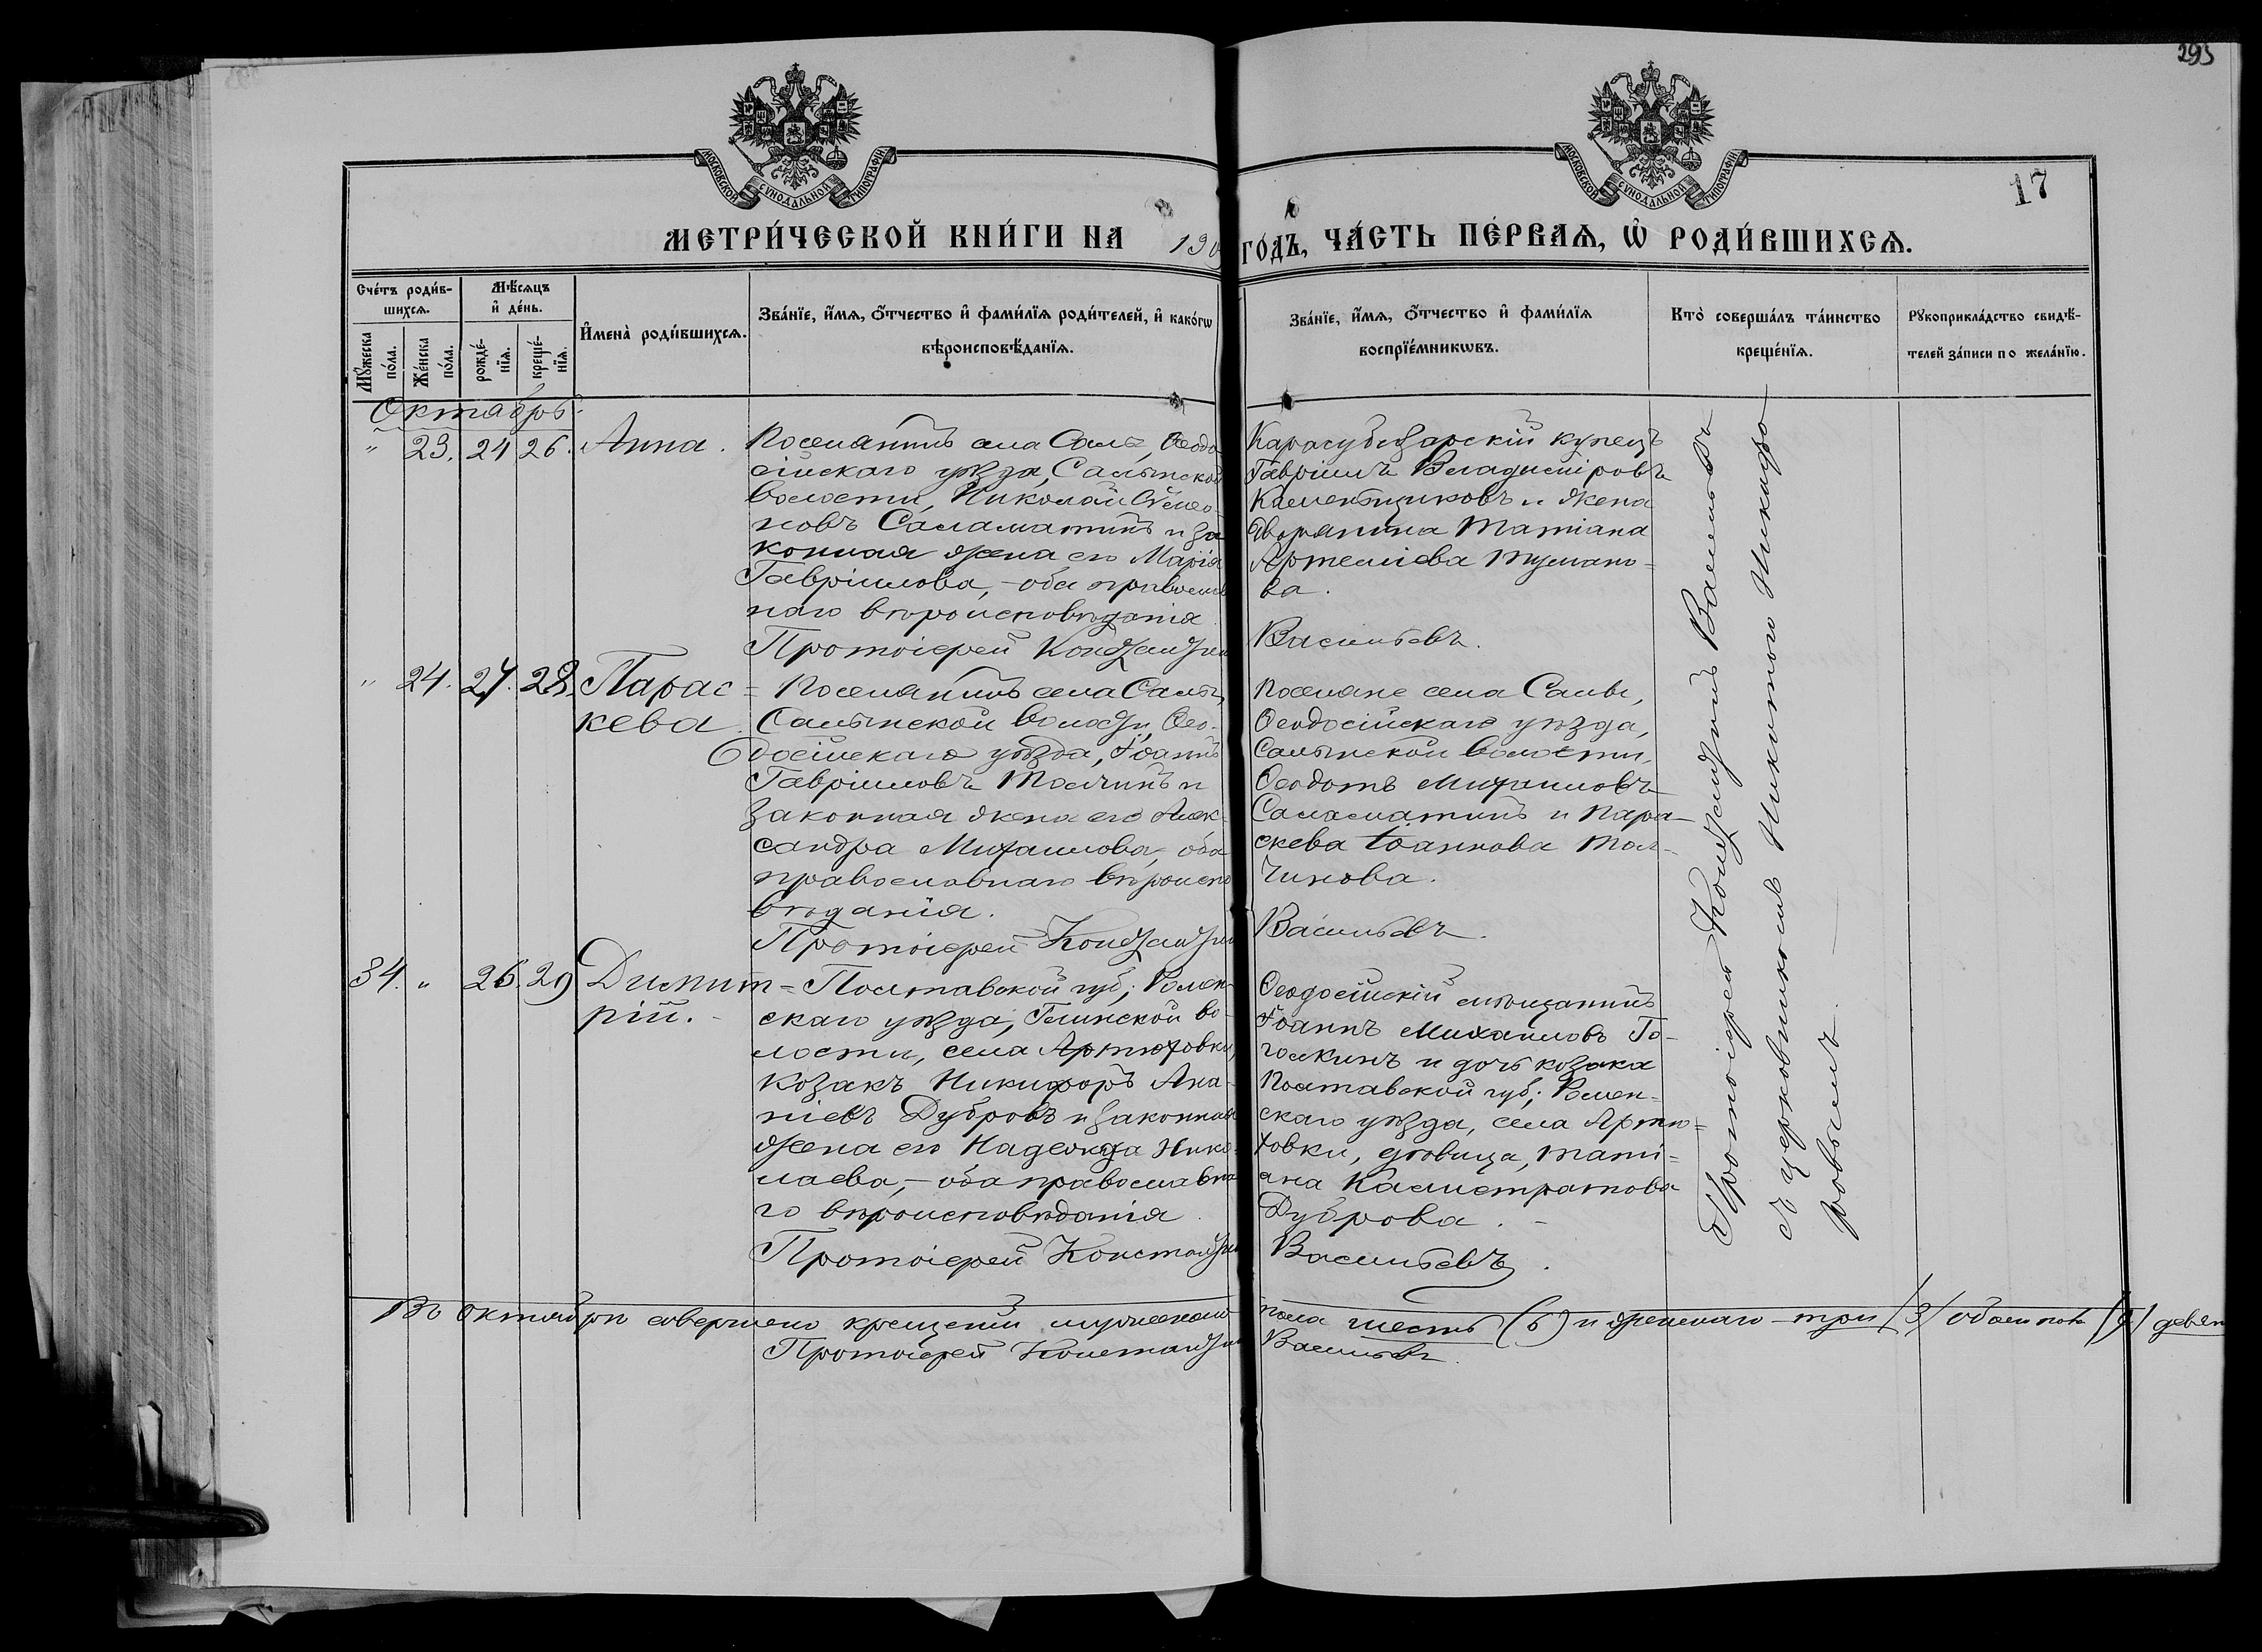 293
17
МОСКОВСКОЙ СУНОДАЛЬНОЙ ТИПОГРАФІИ
МОСКОВСКОЙ СУНОДАЛЬНОЙ ТИПОГРАФІИ
МЕТРИ́ЧЕСКОЙ КНИ́ГИ НА 190
ГО́ДЪ, ЧА́СТЬ ПЕ́РВАѦ, Ѡ҆ РОДИ́ВШИХСѦ.
Сче́тъ роди́в-
шихсѧ.
Мꙋ́жеска
по́ла.
Же́нска
по́ла.
Мѣ́сѧцъ
и҆ де́нь.
рожде́-
нїѧ.
креще́-
нїѧ.
И҆мена̀ роди́вшихсѧ.
Зва́нїе, и҆́мѧ, ѻ҆́тчество и҆ фами́лїѧ роди́телей, и҆ како́гѡ
вѣроисповѣ́данїѧ.
Зва́нїе, и҆́мѧ, ѻ҆́тчество и҆ фами́лїѧ
воспрїе́мникѡвъ.
Кто̀ соверша́лъ та́инство
креще́нїѧ.
Рꙋкоприкла́дство свидѣ́-
телей за́писи по жела́нїю.
Октябрь
" 23. 24 26. Анна.
Поселянинъ села Салы, Ѳеодо
сійскаго уѣзда, Салынской
волости, Николай Сѷмео-
новъ Саламатинъ и за
конная жена его Марія
Гавріилова, - оба православ
наго вѣроисповѣданія.
Протоіерей Константин
Карасубазарскій купецъ
Гавріилъ Владиміровъ
Каменьщиковъ и жена
дворянина Татіана
Артеміева Тумано-
ва.
Васильевъ.
" 24. 27. 28. Парас-
кева.
Поселянинъ села Салы,
Салынской волости, Ѳео-
досійскаго уѣзда, Іоаннъ
Гавріиловъ Толчинъ и
законная жена его Алек-
сандра Михаилова, оба
православнаго вѣроиспо
вѣданія.
Протоіерей Константин
Поселяне села Салы,
Ѳеодосійскаго уѣзда,
Салынской волости,
Ѳеодотъ Михаиловъ
Саламатинъ и Пара-
скева Іоаннова Тол-
чинова.
Васильевъ.
34. " 26. 29 Димит-
рій.
Полтавской губ; Ромен-
скаго уѣзда, Глинской во-
лости, села Артюховки,
козакъ Никифоръ Ана-
ніевъ Дубровъ и законная
жена его Надежда Нико-
лаева, - оба православна
го вѣроисповѣданія.
Протоіерей Константин
Ѳеодосійскій мѣщанинъ
Іоаннъ Михаиловъ Го-
голкинъ и дочь козака
Полтавской губ; Ромен-
скаго уѣзда, села Артю-
ховки, дѣвица, Тати-
ана Калистратова
Дуброва. -
Васильевъ.
Протоіерей Константинъ Васильевъ
съ церковникомъ Никитою Никифо-
ровымъ.
Въ октябрѣ совершено крещеній мужескаго пола шесть (6) и женскаго - три (3) обоего пола (9) девят
Протоіерей Константин Васильевъ.